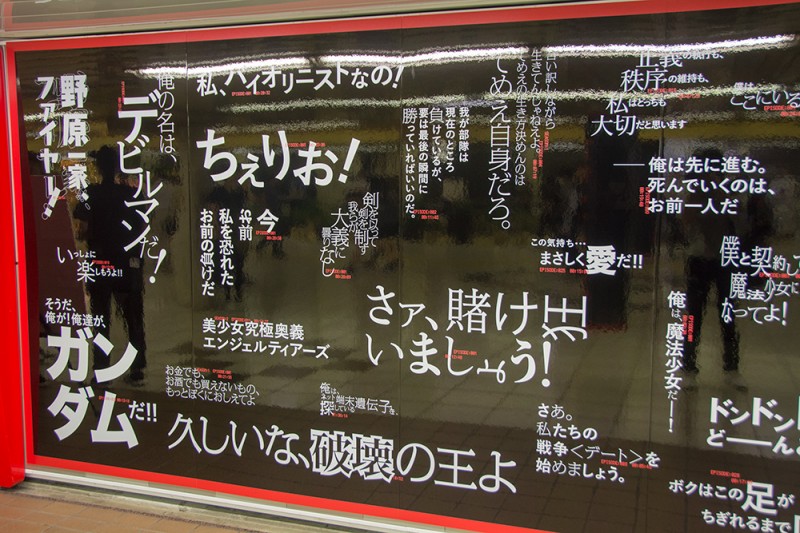 野原一家、
ファイヤー！
俺の名は、
デビルマンだ！
いっしょに
楽しもうよ!!
そうだ、
俺が！俺達が、
ガン
ダムだ!!
私、バイオリニストなの！
ちぇりお！
今
私を恐れた
お前の負けだ
美少女究極奥義
エンジェルティアーズ
お金でも、
お酒でも買えないもの、
もっとぼくにおしえてよ
久しいな、破壊の王よ
剣を以って
剣を制す
大義に
曇りなし
俺は、
ネット端末遺伝子を、
探している
我が部隊は
現在のところ
負けているが、
要は最後の瞬間に
勝っていればいいのだ。
生きてんじゃねえよ。
てめえの生き方決めんのは
てめえ自身だろ。
この気持ち…
まさしく愛だ!!
さァ、賭け狂
いましょう！
さあ。
私たちの
戦争＜デート＞を
始めましょう。
正義の執行も、
秩序の維持も、
私はどっちも
大切だと思います
僕は
ここにいる
──俺は先に進む。
死んでいくのは、
お前一人だ
僕と契約し
魔法少女に
なってよ！
俺は、魔法少女だー！
ドンドン
どーーん
ボクはこの足が
ちぎれるまで